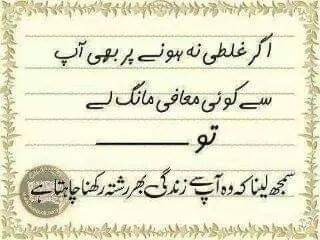 اگر غلطی نہ ہونے پر بھی آپ
سے کوئی معافی مانگ لے
تو ـــــــــــــ
سمجھ لینا کہ وہ آپ سے زندگی بھر رشتہ رکھنا چاہتا ہے